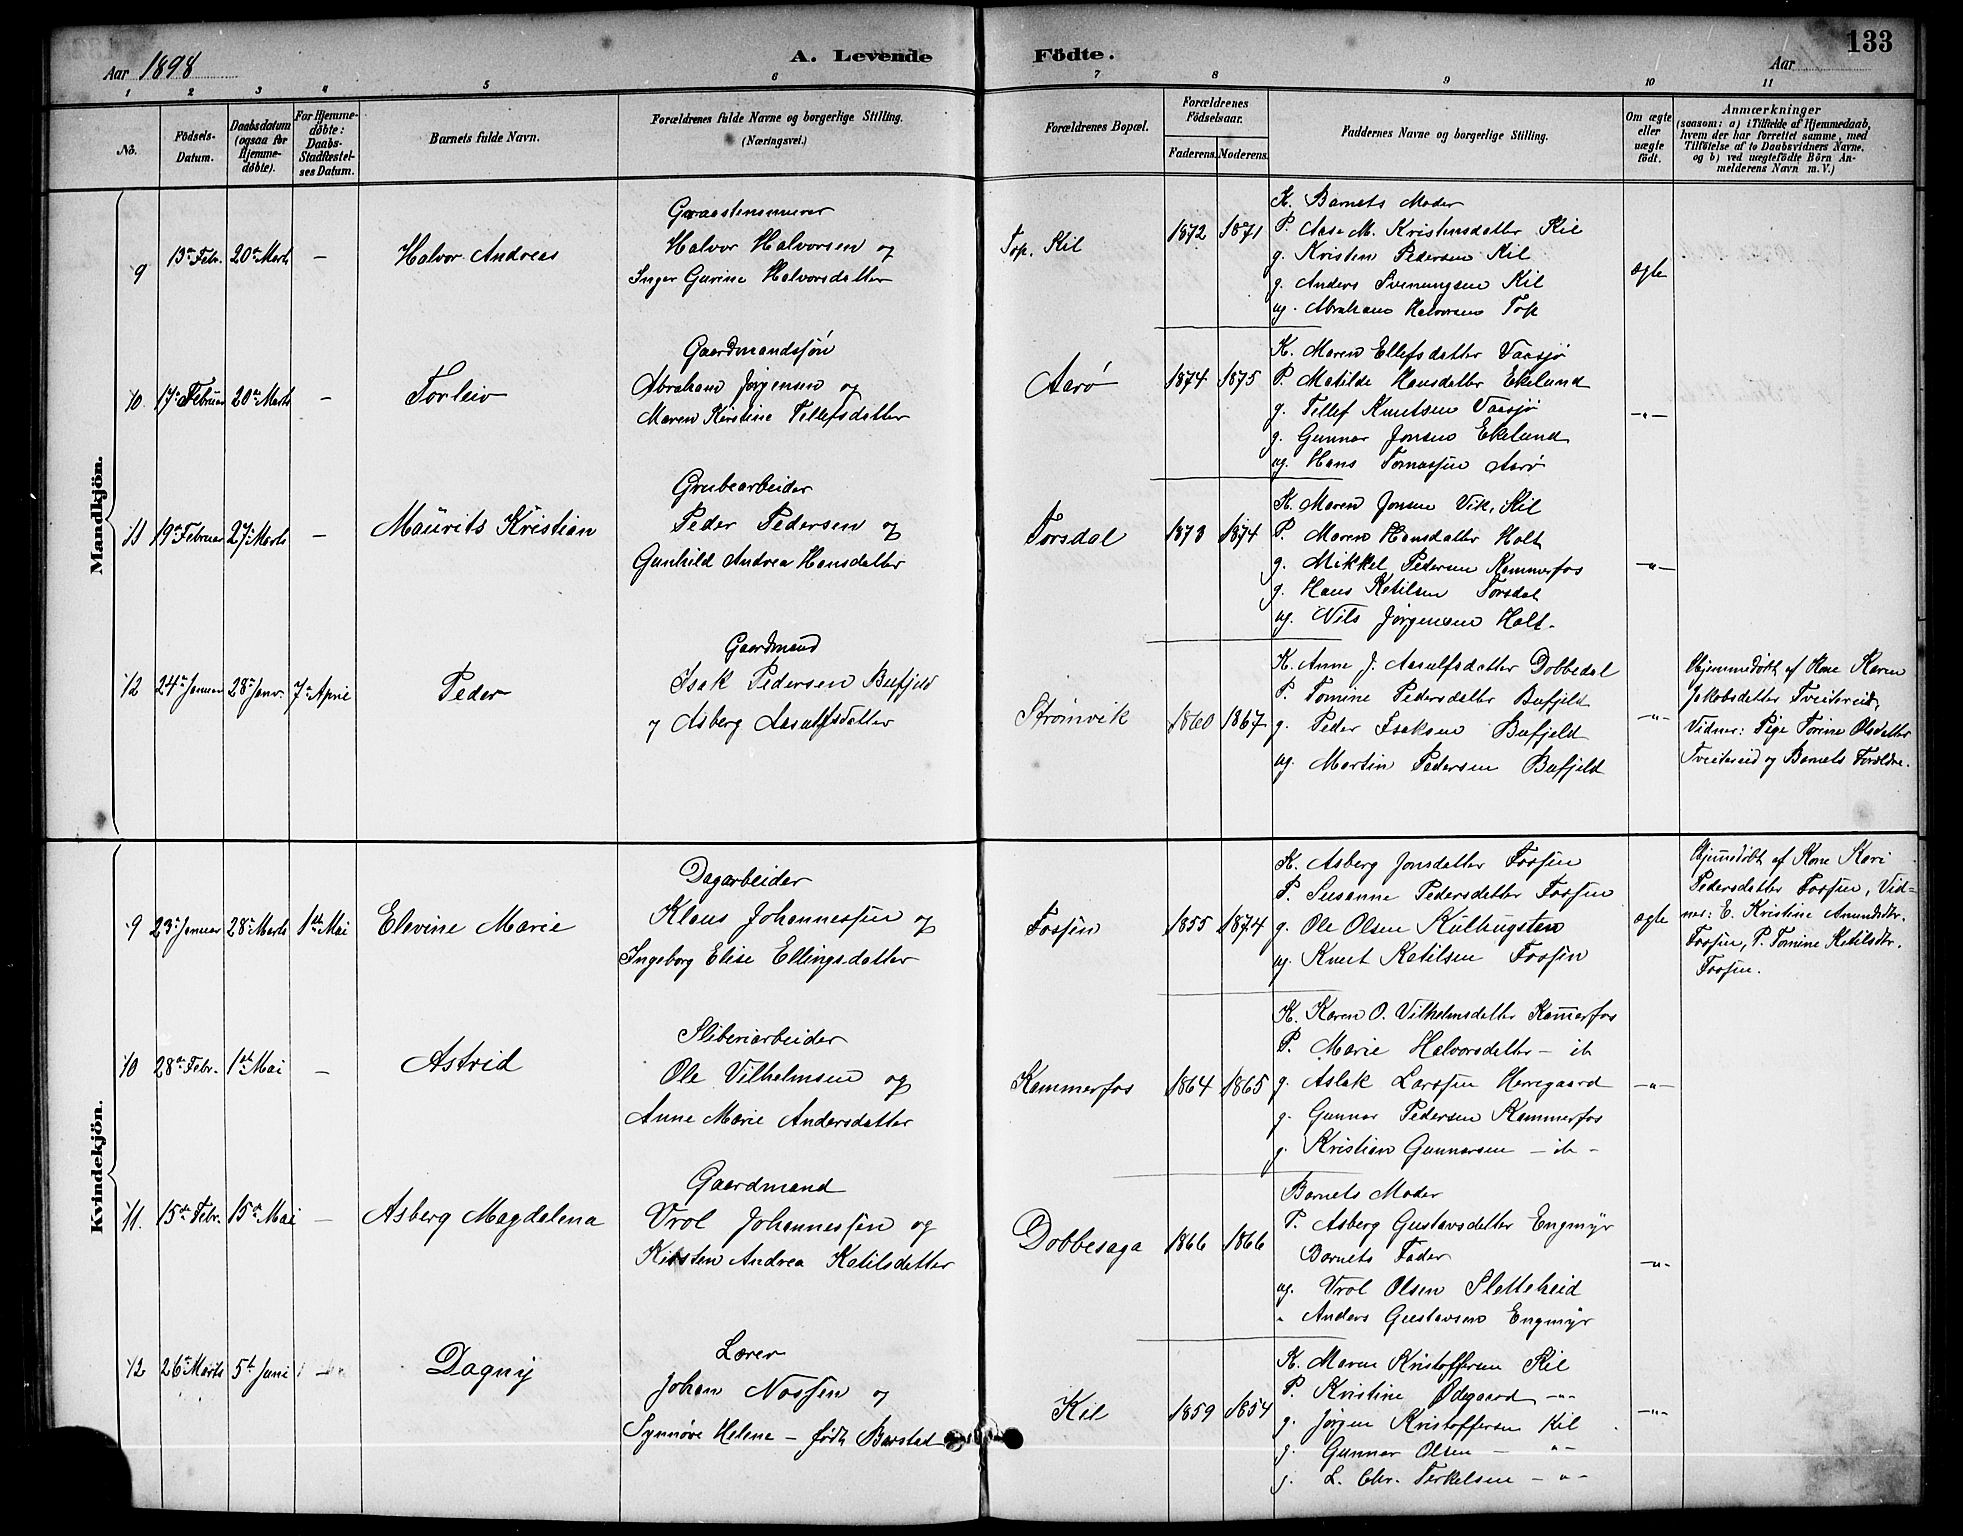 Aar 1898
A. Levende Födte.
Aar
133
1 2 3 4 5 6 7 8 9 10 11
No.
Födsels-Datum.
Daabsdatum (ogsaa for Hjemmedøbte).
For Hjemmedøbte: Daabs-Stadfæstelses Datum.
Barnets fulde Navn.
Forældrenes fulde Navne og borgerlige Stilling. (Næringsvei.)
Forældrenes Bopæl.
Forældrenes Födselsaar.
Faderens. Moderens.
Faddernes Navne og borgerlige Stilling.
Om ægte eller uægte födt.
Anmærkninger (saasom: a) i Tilfælde af Hjemmedaab, hvem der har forrettet samme, med Tilföielse af to Daabsvidners Navne, og b) ved uægtefödte Börn Anmelderens Navn m. V.)
Mandkjön.
9 13de Febr. 20de Marts — Halvor Andreas
Graastensmurer
Halvor Halvorsen og
Inger Gurine Halvorsdatter
Top, Kil 1872 1871
K. Barnets Moder
P. Aase M. Kristensdatter Kil
g. Kristen Pedersen Kil
g. Anders Svenungsen Kil
ug. Abraham Halvorsen Top
ægte
10. 17de Februar 20de Marts — Torleiv
Gaardmandssøn
Abraham Jørgensen og
Maren Kirstine Tellefsdatter
Aarø 1874 1875
K. Maren Ellefsdatter Vaasjø
P. Matilde Hansdatter Ekelund
g. Tellef Knutsen Vaasjø
g. Gunnar Jonsen Ekelund
ug. Hans Tomassen Aarø
—"—
11 19de Februar 27de Marts — Maurits Kristian
Grubearbeider
Peder Pedersen og
Gunhild Andrea Hansdatter
Torsdal 1873 1874
K. Maren Jonsen Vik, Kil
P. Maren Hansdatter Holt
g. Mikkel Pedersen Kammerfos
g. Hans Ketilsen Torsdal
ug. Nils Jørgensen Holt.
—"—
12 24de Januar 28de Janr. 7de April Peder
Gaardmand
Isak Pedersen Bufjeld
og Asberg Aasulfsdatter
Strømvik 1860 1867
K. Anne J. Aasulfsdatter Dobbedal
P. Tomine Pedersdatter Bufjeld
g. Peder Isaksen Bufjeld
ug. Martin Pedersen Bufjeld
—"—
Hjemmedøbt af Kone Karen
Jakobsdatter Tveitereid,
Vidner: Pige Torine Olsdatter
Tveitereid og Barnets Forældre.
Kvindekjön.
9 23de Januar 28de Marts 1ste Mai Elevine Marie
Dagarbeider
Klaus Johannessen og
Ingeborg Elise Ellingsdatter
Fossen 1855 1874
K. Asberg Jonsdatter Fossen
P. Susanne Pedersdatter Fossen
g. Ole Olsen Kulhugsten
ug. Knut Ketilsen Fossen
ægte
Hjemmedøbt af Kone Kari
Pedersdatter Fossen, Vid=
ner: E. Kristine Amundsdtr.
Fossen, P. Tomine Ketilsdtr.
Fossen.
10 28de Febr. 1ste Mai — Astrid
Sliberiarbeider
Ole Vilhelmsen og
Anne Marie Andersdatter
Kammerfos 1864 1865
K. Karen O. Vilhelmsdatter Kammerfos
P. Marie Halvorsdatter — ib
g. Aslak Larssen Herregaard
g. Gunnar Pedersen Kammerfos
g. Kristian Gunnarsen — ib —
—"—
11. 15de Febr. 15de Mai — Asberg Magdalena
Gaardmand
Vrol Johannessen og
Kirsten Andrea Ketilsdatter
Dobbesaga 1866 1866
Barnets Moder
P. Asberg Gustavsdatter Engmyr
Barnets Fader
ug. Vrol Olsen Sletteheid
" Anders Gustavsen Engmyr
—"—
12 26de Marts 5te Juni — Dagny
Lærer
Johan Nossen og
Synnøve Helene — født Barstad
Kil 1859 1854
K. Maren Kristoffersen Kil
P. Kristine Ødegaard —"—
g. Jørgen Kristoffersen Kil
g. Gunnar Olsen — "—
g. L. Chr. Terkelsen — " —
—"—